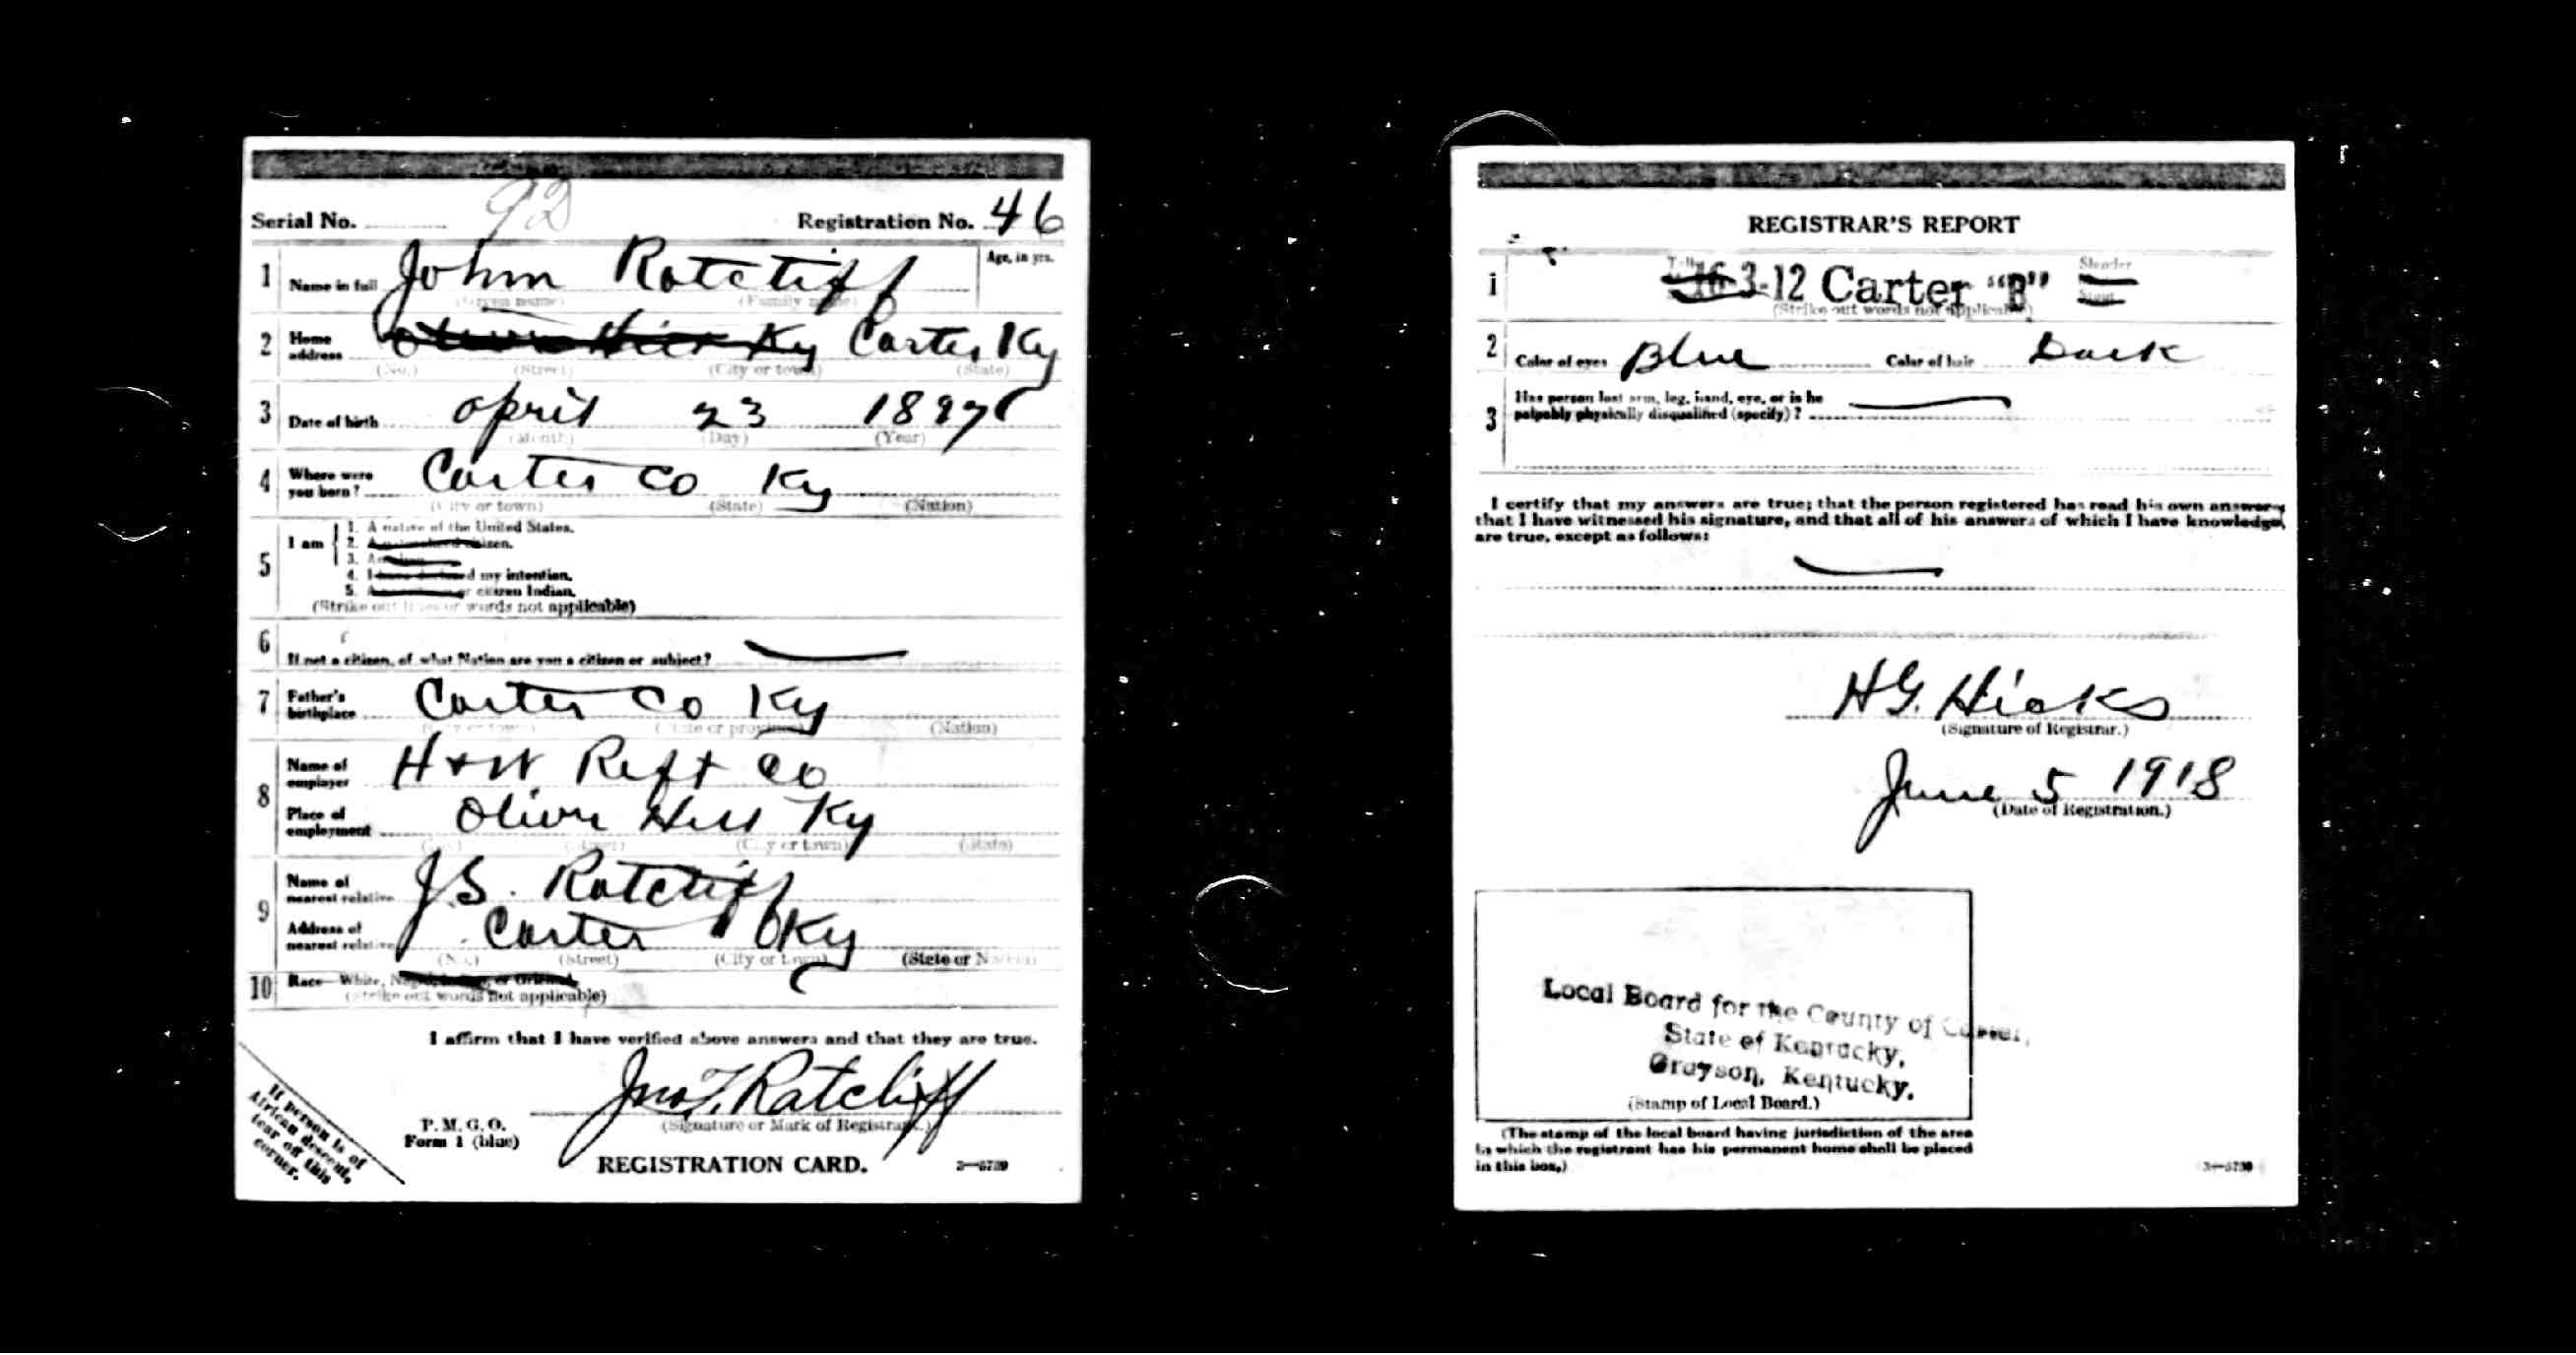 Serial No. 92 Registration No. 46
1 Name in full John Ratcliff Age, in yrs.
(Given name) (Family name)
2 Home address Olive Hill Ky Carter Ky
(No.) (Street) (City or town) (State)
3 Date of birth april 23 1897
(Month) (Day) (Year)
4 Where were you born? Carter Co Ky
(City or town) (State) (Nation)
5 I am
1. A native of the United States.
2. A naturalized citizen.
3. An alien.
4. I have declared my intention.
5. A noncitizen or citizen Indian.
(Strike out lines or words not applicable)
6 If not a citizen, of what Nation are you a citizen or subject?
7 Father's birthplace Carter Co Ky
(City or town) (State or province) (Nation)
8 Name of employer H + W Reft Co
Place of employment Olive Hill Ky
(No.) (Street) (City or town) (State)
9 Name of nearest relative J.S. Ratcliff
Address of nearest relative Carter Ky
(No.) (Street) (City or town) (State or Nation)
10 Race—White, Negro, Indian, or Oriental
(Strike out words not applicable)
I affirm that I have verified above answers and that they are true.
Jno T. Ratcliff
(Signature or Mark of Registrant.)
P. M. G. O.
Form 1 (blue)
REGISTRATION CARD. 3—5739
If person is of
African descent,
tear off this
corner.
REGISTRAR'S REPORT
1 Tall 16 3-12 Carter "B" Slender Stout
(Strike out words not applicable)
2 Color of eyes Blue Color of hair Dark
3 Has person lost arm, leg, hand, eye, or is he
palpably physically disqualified (specify)?
I certify that my answers are true; that the person registered has read his own answers,
that I have witnessed his signature, and that all of his answers of which I have knowledge,
are true, except as follows:
H.G. Hicks
(Signature of Registrar.)
June 5 1918
(Date of Registration.)
Local Board for the County of Carter,
State of Kentucky,
Grayson, Kentucky.
(Stamp of Local Board.)
(The stamp of the local board having jurisdiction of the area
in which the registrant has his permanent home shall be placed
in this box.)
3—5739